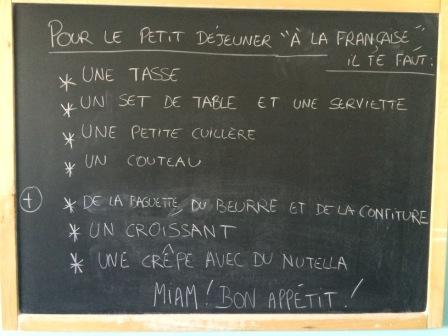 POUR LE PETIT DÉJEUNER "À LA FRANÇAISE"
IL TE FAUT:
* UNE TASSE
* UN SET DE TABLE ET UNE SERVIETTE
* UNE PETITE CUILLÈRE
* UN COUTEAU
+ * DE LA BAGUETTE, DU BEURRE ET DE LA CONFITURE
* UN CROISSANT
* UNE CRÊPE AVEC DU NUTELLA
MIAM! BON APPÉTIT!